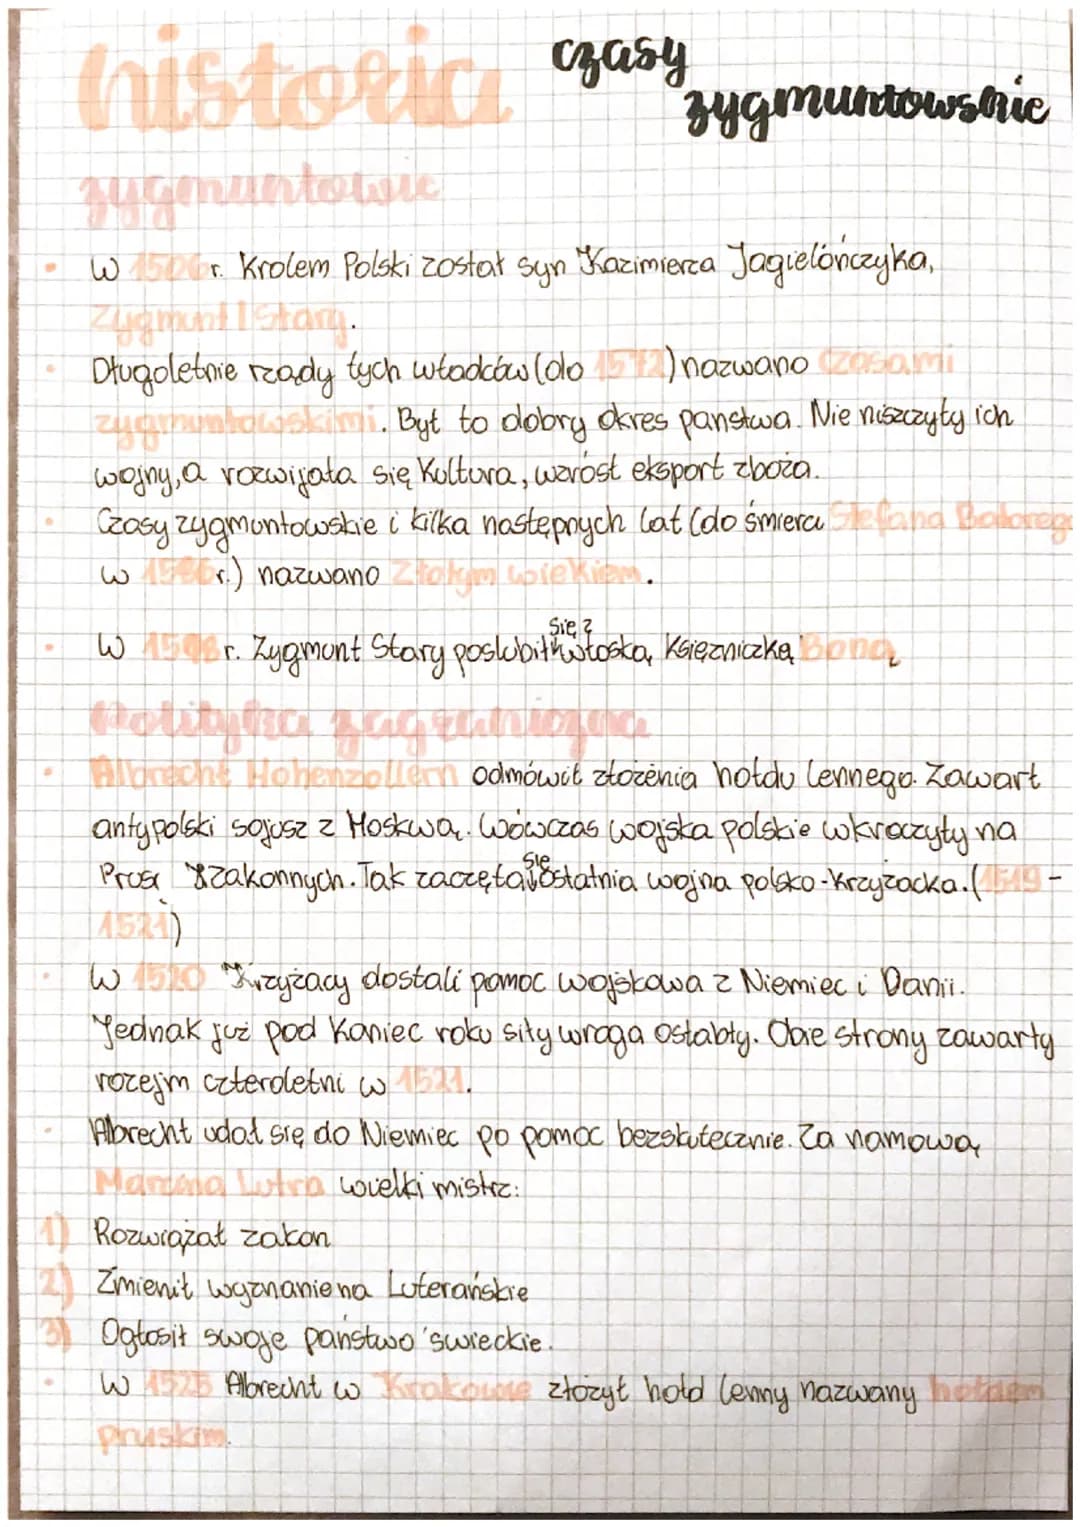 historia czasy
zygmuntowskie
zygmuntowie
• W 1506 r. Krolem Polski został syn Kazimierza Jagielończyka,
Zygmunt I Stary.
• Długoletnie rządy tych władców (do 1572) nazwano czasami
zygmuntowskimi. Był to dobry okres panstwa. Nie niszczyły ich
wojny, a rozwijała się Kultura, wzróst eksport zboża.
• Czasy zygmuntowskie i kilka następnych lat (do śmierci Stefana Batorego
w 1586 r.) nazwano Złotym wiekiem.
• W r. Zygmunt Stary poslubił się z włoską Księzniczką Boną
Polityka zagraniczna
• Albrecht Hohenzollern odmówił złożenia hołdu lennego. Zawarł
antypolski sojusz z Moskwą. Wówczas wojska polskie wkroczyły na
zakonnych. Tak zaczęła się ostatnia wojna polsko-Krzyżacka. (1519-
1521)
• W 1520 Krzyżacy dostali pomoc wojskowa z Niemiec i Danii.
Jednak już pod Koniec roku siły wroga osłabły. Obie strony zawarły
rozejm czteroletni w 1521.
• Albrecht udał się do Niemiec po pomoc bezskutecznie. Za namową
Marcina Lutra wielki mistrz:
1) Rozwiązał zakon
2) Zmienił wyznanie na Luterańskie
3) Ogłosił swoje państwo świeckie.
• W 1525 Albrecht w Krakowie złożył hołd lenny nazwany hołdem
pruskim.